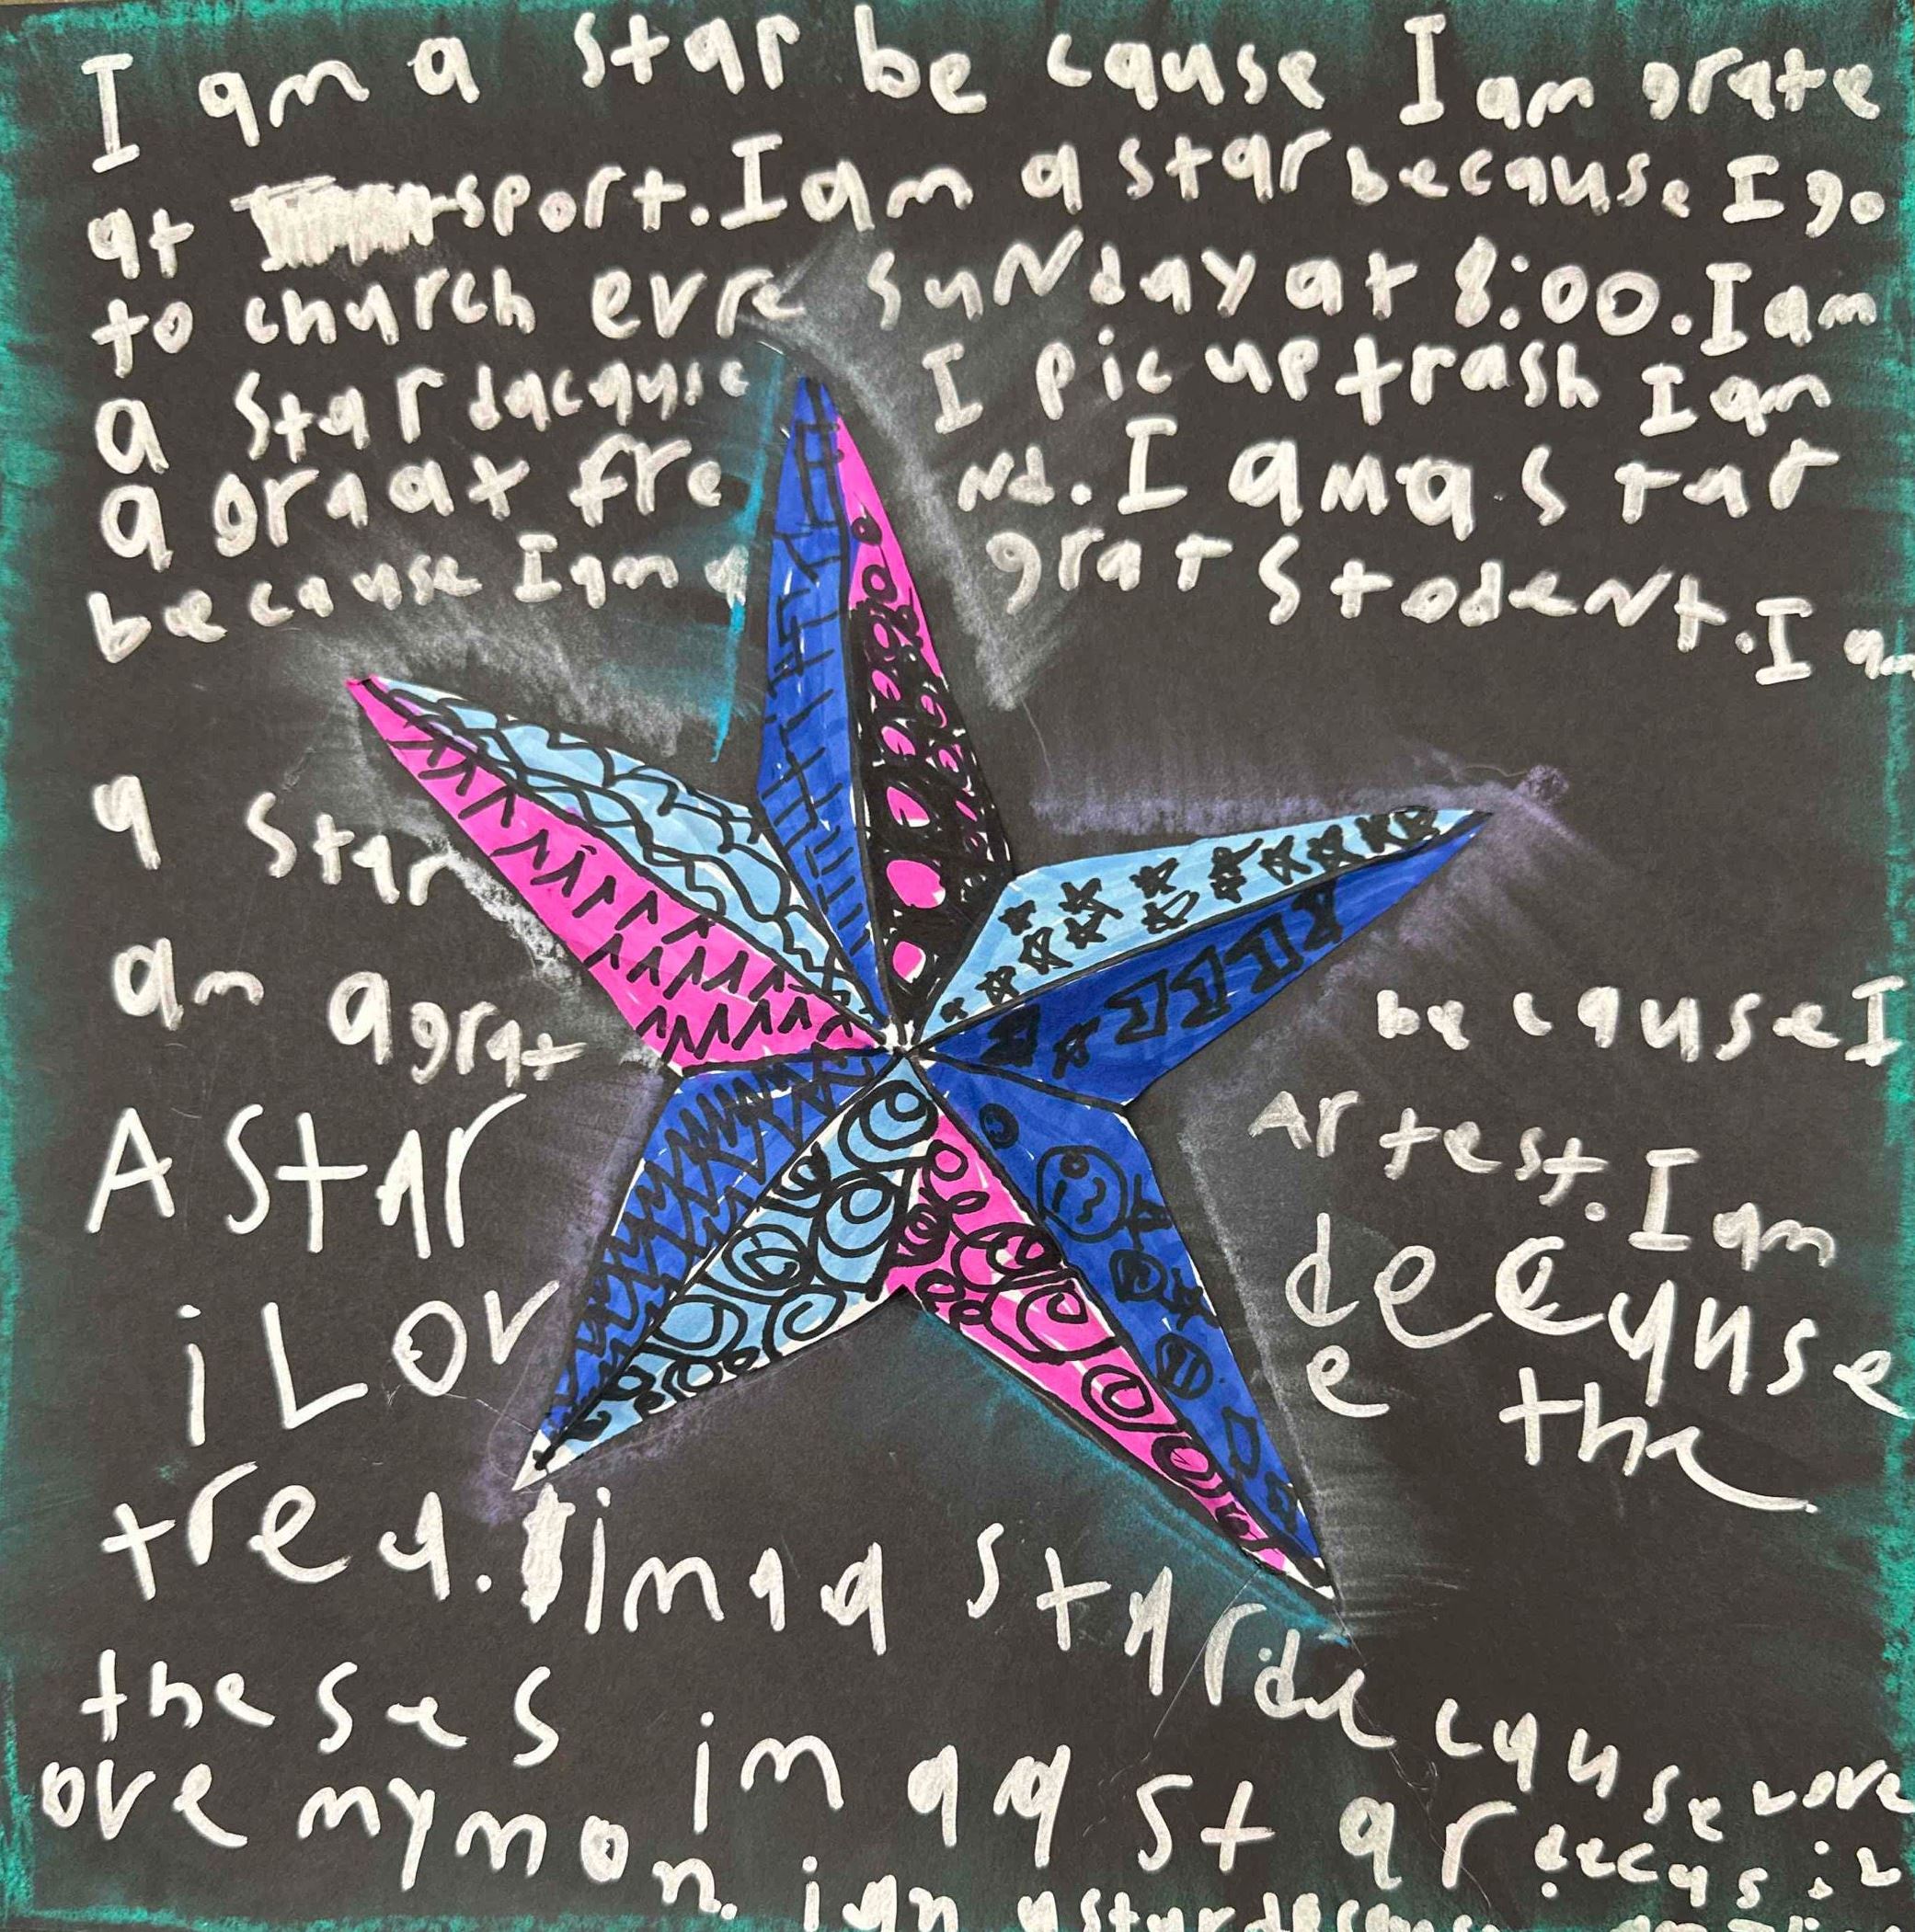 I am a star be cause I am grate
at sport. I am a star because I go
to church evre sunday at 8:00. I am
a star dacause I pic up trash I am
a graat fre nd. I am a star
because I am a grat stodent. I am
a star because I
am a grat artest. I am
A star decause
i Lov e the
tree. im a a star decause Love
the ses im a a star
ove my mon. i am a star